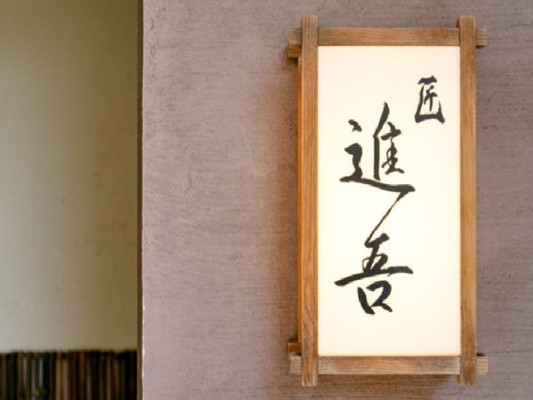 匠
進吾